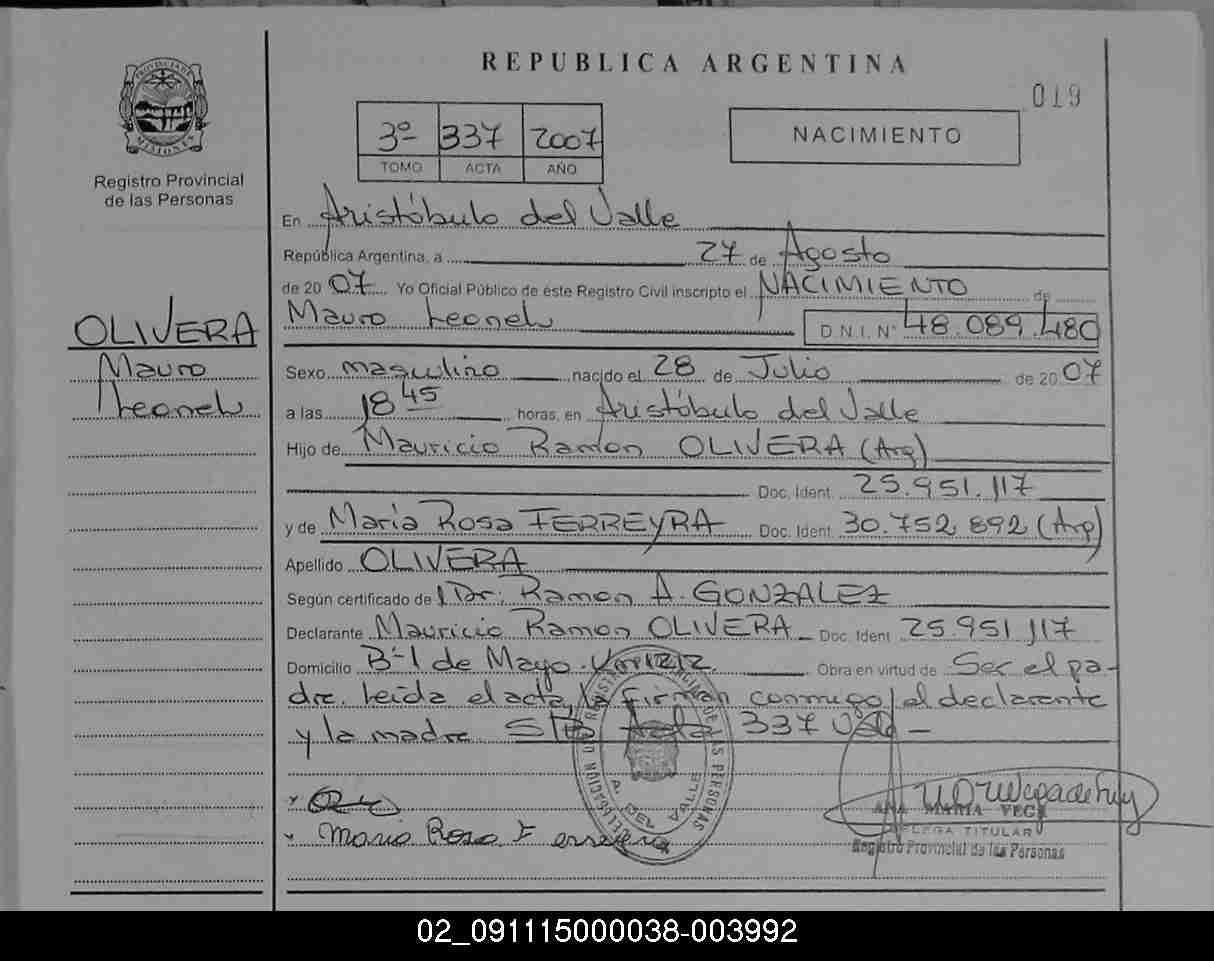 REPUBLICA ARGENTINA
019
PROVINCIA DE
MISIONES
Registro Provincial
de las Personas
3º 337 2007
TOMO ACTA AÑO
NACIMIENTO
En Aristóbulo del Valle
República Argentina, a 27 de Agosto
de 20 07 Yo Oficial Público de este Registro Civil inscripto el NACIMIENTO de
Mauro Leonel D.N.I. Nº 48.089.480
OLIVERA
Mauro
Leonel
Sexo masculino nacido el 28 de Julio de 20 07
a las 18 45 horas, en Aristóbulo del Valle
Hijo de Mauricio Ramon OLIVERA (Arg)
Doc. Ident. 25.951.117
y de Maria Rosa FERREYRA Doc. Ident. 30.752.892 (Arg)
Apellido OLIVERA
Según certificado de Dr. Ramon A. GONZALEZ
Declarante Mauricio Ramon OLIVERA Doc. Ident 25.951.117
Domicilio Bº 1 de Mayo. Obra en virtud de Ser el pa-
dre. Leida el acta, la firman conmigo el declarante
y la madre S/B 337
A. DEL VALLE
Maria Rosa Ferreyra
ANA MARIA VEGA
DELEGA TITULAR
Registro Provincial de las Personas
02_091115000038-003992